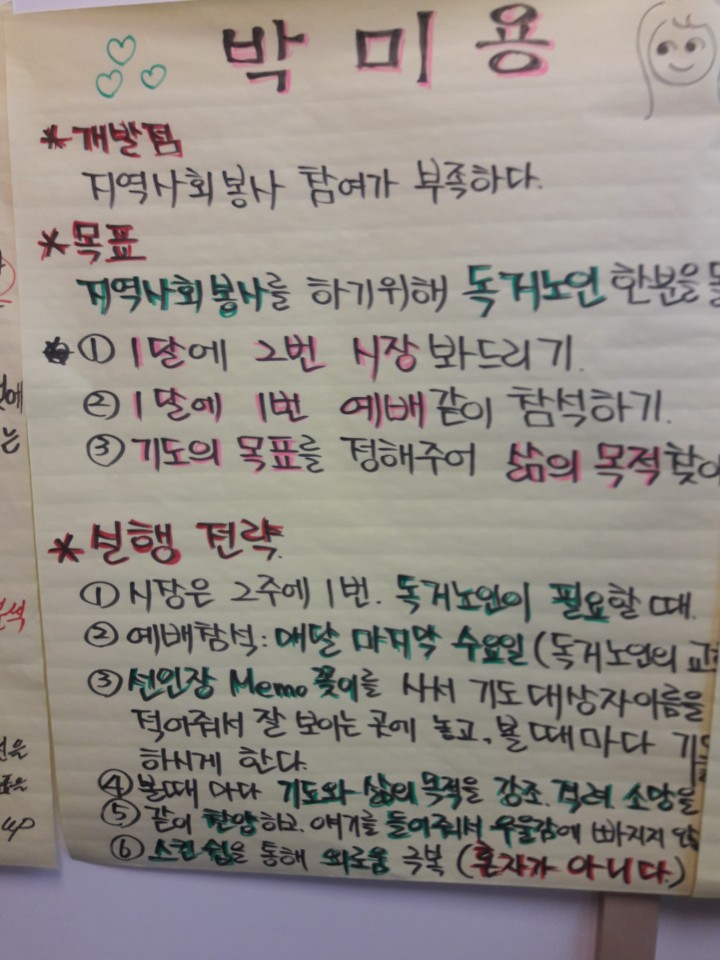 박 미 용
* 개발점
지역사회봉사 참여가 부족하다.
* 목표
지역사회봉사를 하기위해 독거노인 한분을
① 1달에 2번 시장 봐드리기.
② 1달에 1번 예배같이 참석하기.
③ 기도의 목표를 정해주어 삶의 목적 찾아
* 실행 전략.
① 시장은 2주에 1번. 독거노인이 필요할 때.
② 예배참석: 매달 마지막 수요일 (독거노인의 교회
③ 선인장 Memo 꽂이를 사서 기도대상자이름을
적어줘서 잘 보이는 곳에 놓고, 볼때마다 기도
하시게 한다.
④ 볼때 마다 기도와 삶의 목적을 강조. 격려. 소망을
⑤ 같이 찬양하고. 얘기를 들어줘서 우울감에 빠지지 않
⑥ 스킨쉽을 통해 외로움 극복 (혼자가 아니다.)
에
는
석
은
40